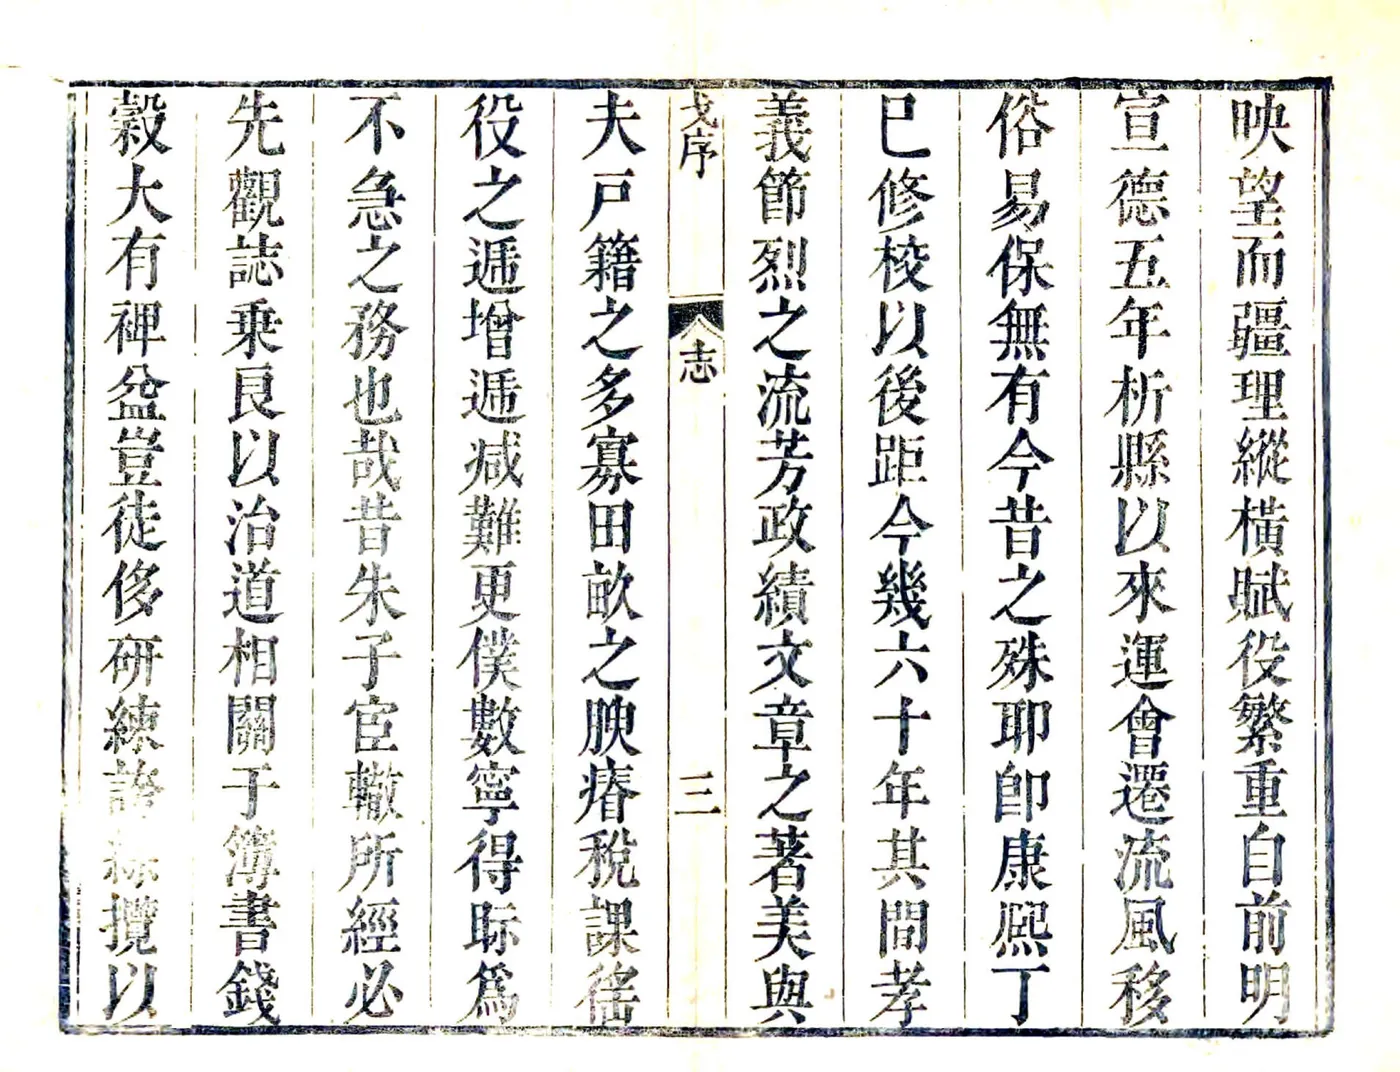 映望而疆理縱橫賦役繁重自前明
宣德五年析縣以來運會遷流風移
俗易保無有今昔之殊耶卽康熈丁
巳修校以後距今幾六十年其間孝
義節烈之流芳政績文章之著美與
戈序 志 三
夫戸籍之多寡田畝之腴瘠稅課徭
役之遞增遞减難更僕數寧得眎爲
不急之務也哉昔朱子宦轍所經必
先觀誌乗良以治道相關于簿書錢
穀大有裨益豈徒侈研練誇綜攬以